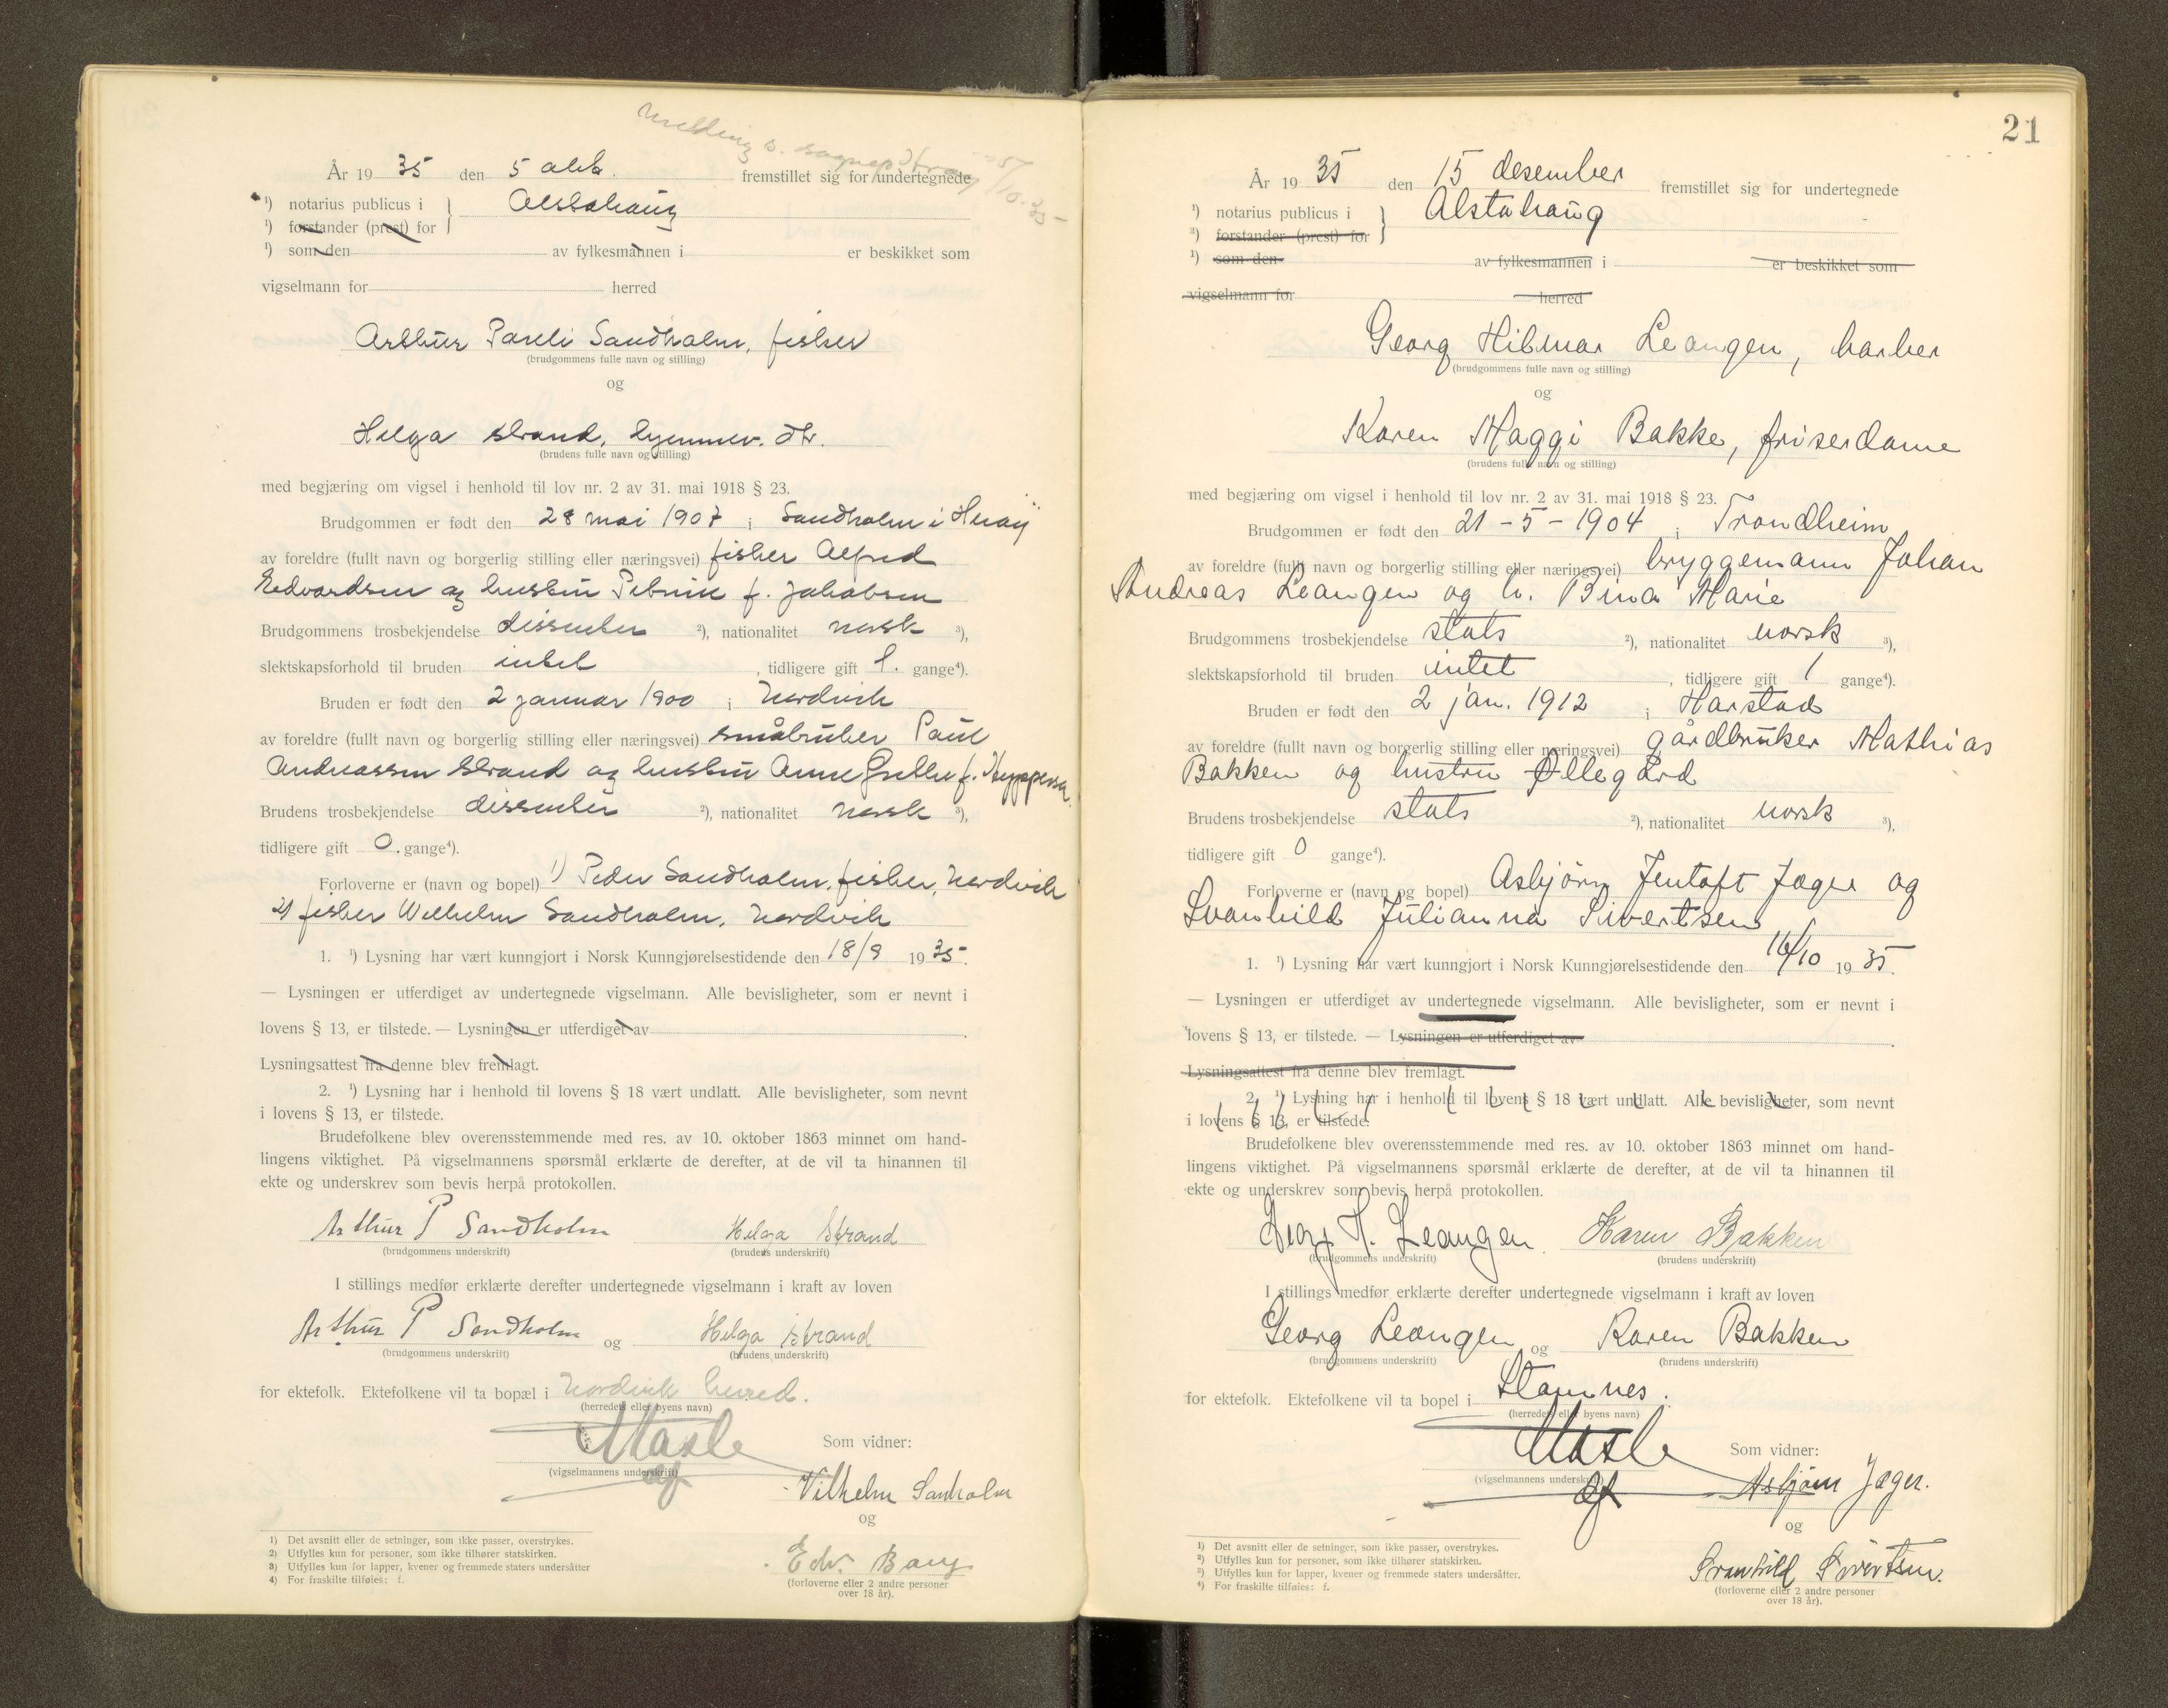 År 19 35 den 5 okt. fremstillet sig for undertegnede
¹) notarius publicus i Alstahaug
¹) forstander (prest) for
¹) som den av fylkesmannen i er beskikket som
vigselmann for herred
Arthur Pareli Sandholm, fisker
(brudgommens fulle navn og stilling)
og
Helga Strand, hjemmev. dtr.
(brudens fulle navn og stilling)
med begjæring om vigsel i henhold til lov nr. 2 av 31. mai 1918 § 23.
Brudgommen er født den 28 mai 1907 i Sandholm i Herøy
av foreldre (fullt navn og borgerlig stilling eller næringsvei) fisker Alfred
Edvardsen og hustru Petrine f. Jakobsen
Brudgommens trosbekjendelse dissenter ²), nationalitet norsk ³),
slektskapsforhold til bruden intet, tidligere gift 1. gange⁴).
Bruden er født den 2 januar 1900 i Nordvik
av foreldre (fullt navn og borgerlig stilling eller næringsvei) småbruker Paul
Andreassen Strand og hustru Anne Grethe f.
Brudens trosbekjendelse dissenter ²), nationalitet norsk ³),
tidligere gift 0. gange⁴).
Forloverne er (navn og bopel) 1) Peder Sandholm, fisker, Nordvik
2) fisker Wilhelm Sandholm, Nordvik
1. ¹) Lysning har vært kunngjort i Norsk Kunngjørelsestidende den 18/9 19 35.
— Lysningen er utferdiget av undertegnede vigselmann. Alle bevisligheter, som er nevnt i
lovens § 13, er tilstede. — Lysningen er utferdiget av
Lysningsattest fra denne blev fremlagt.
2. ¹) Lysning har i henhold til lovens § 18 vært undlatt. Alle bevisligheter, som nevnt
i lovens § 13, er tilstede.
Brudefolkene blev overensstemmende med res. av 10. oktober 1863 minnet om hand-
lingens viktighet. På vigselmannens spørsmål erklærte de derefter, at de vil ta hinannen til
ekte og underskrev som bevis herpå protokollen.
Arthur P Sandholm Helga Strand
(brudgommens underskrift) (brudens underskrift)
I stillings medfør erklærte derefter undertegnede vigselmann i kraft av loven
Arthur P Sandholm og Helga Strand
(brudgommens underskrift) (brudens underskrift)
for ektefolk. Ektefolkene vil ta bopæl i Nordvik herred.
(herredets eller byens navn)
Som vidner:
(vigselmannens underskrift)
Vilhelm Sanholm
og
Edv. Bang
(forloverne eller 2 andre personer
over 18 år).
1) Det avsnitt eller de setninger, som ikke passer, overstrykes.
2) Utfylles kun for personer, som ikke tilhører statskirken.
3) Utfylles kun for lapper, kvener og fremmede staters undersåtter
4) For fraskilte tilføies: f.
21
År 19 35 den 15 desember fremstillet sig for undertegnede
¹) notarius publicus i Alstahaug
¹) forstander (prest) for
¹) som den av fylkesmannen i er beskikket som
vigselmann for herred
Georg Hilmar Leangen, barber
(brudgommens fulle navn og stilling)
og
Karen Maggi Bakke, friserdame
(brudens fulle navn og stilling)
med begjæring om vigsel i henhold til lov nr. 2 av 31. mai 1918 § 23.
Brudgommen er født den 21-5-1904 i Trondheim
av foreldre (fullt navn og borgerlig stilling eller næringsvei) bryggemann Johan
Andreas Leangen og h. Bina Marie
Brudgommens trosbekjendelse stats ²), nationalitet norsk ³),
slektskapsforhold til bruden intet, tidligere gift 1 gange⁴).
Bruden er født den 2 jan. 1912 i Harstad
av foreldre (fullt navn og borgerlig stilling eller næringsvei) gårdbruker Mathias
Bakken og hustru Øllegård
Brudens trosbekjendelse stats ²), nationalitet norsk ³),
tidligere gift 0 gange⁴).
Forloverne er (navn og bopel) Asbjørn Jentoft Jæger og
Svanhild Julianna Sivertsen
1. ¹) Lysning har vært kunngjort i Norsk Kunngjørelsestidende den 16/10 19 35.
— Lysningen er utferdiget av undertegnede vigselmann. Alle bevisligheter, som er nevnt i
lovens § 13, er tilstede. — Lysningen er utferdiget av
Lysningsattest fra denne blev fremlagt.
2. ¹) Lysning har i henhold til lovens § 18 vært undlatt. Alle bevisligheter, som nevnt
i lovens § 13, er tilstede.
Brudefolkene blev overensstemmende med res. av 10. oktober 1863 minnet om hand-
lingens viktighet. På vigselmannens spørsmål erklærte de derefter, at de vil ta hinannen til
ekte og underskrev som bevis herpå protokollen.
Georg H. Leangen. Karen Bakken
(brudgommens underskrift) (brudens underskrift)
I stillings medfør erklærte derefter undertegnede vigselmann i kraft av loven
Georg Leangen og Karen Bakken
(brudgommens underskrift) (brudens underskrift)
for ektefolk. Ektefolkene vil ta bopel i Stamnes.
(herredets eller byens navn)
Som vidner:
(vigselmannens underskrift)
Asbjørn Jæger.
og
Svanhild Sivertsen.
(forloverne eller 2 andre personer
over 18 år).
1) Det avsnitt eller de setninger, som ikke passer, overstrykes.
2) Utfylles kun for personer, som ikke tilhører statskirken.
3) Utfylles kun for lapper, kvener og fremmede staters undersåtter.
4) For fraskilte tilføies: f.